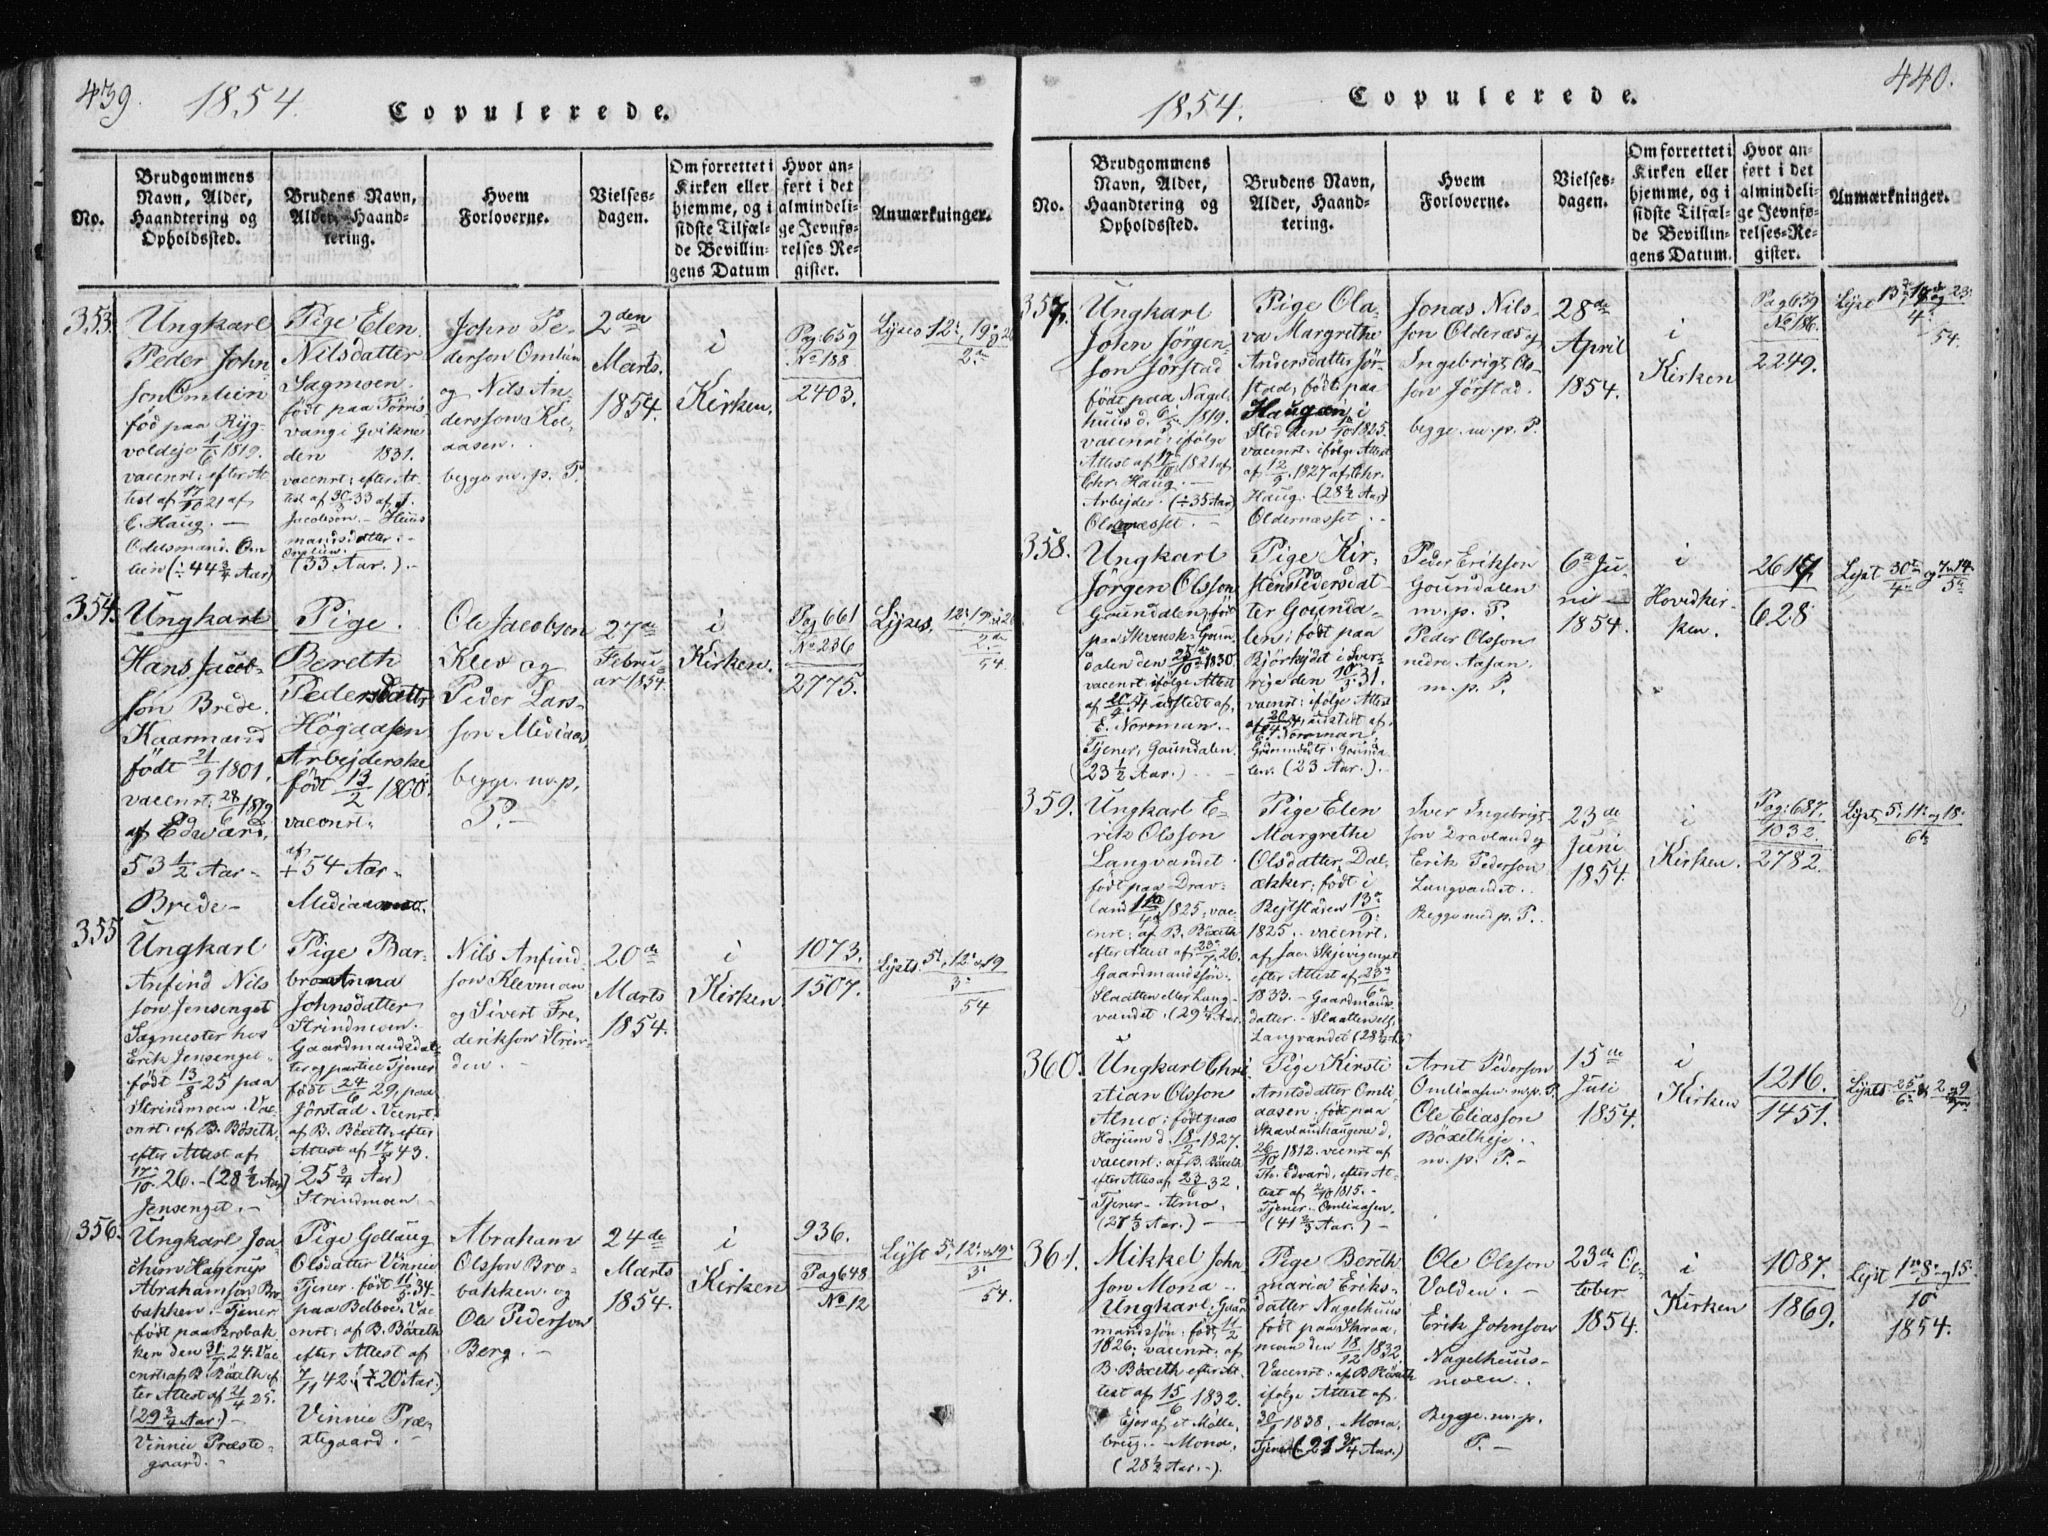 439.
1854.
Copulerede.
No.
Brudgommens
Navn, Alder,
Haandtering og
Opholdssted.
Brudens Navn,
Alder, Haand-
tering.
Hvem
Forloverne.
Vielses-
dagen.
Om forrettet i
Kirken eller
hjemme, og i
sidste Tilfæl-
de Bevillin-
gens Datum
Hvor an-
ført i det
almindeli-
ge Jevnfø-
relses Re-
gister.
Anmærkninger.
353.
Ungkarl
Peder John
son Omlien
fød paa Ryg-
voldeje 1/6 1819.
vaccnrt; efter At-
test af 17/10 21 af
C. Haug. —
Odelsmand. Om
lien (÷ 44 3/4 Aar)
Pige Elen.
Nilsdatter
Sagmoen.
født paa Førris
vang i Qvikne
den 1831.
vaccnrt; efter At-
test af 30/3 33 af J.
Jacobson. — Huus
mandsdatter. —
Omlien.
(33 Aar.) —
John Pe-
derson Omlien
og Nils An-
dersson Koe-
aasen.
begge m. p. P.
2den
Marts.
1854.
i
Kirken.
Pag: 659
No 188
2403.
Lyses 12. 19. og 26
2.
354.
Ungkarl
Hans Jacob-
son Brede.
Kaarmand
født 21/9 1801.
vaccnrt. 28/6 1819
af Edward.
53 1/2 Aar —
Brede —
Pige.
Bereth
Pedersdatt,
Högaasen
Arbejderske
født 13/2 1800.
vaccnrt.
af
+ 54 Aar —
Ole Jacobson
Klev og
Peder Lars-
son Mediaas
begge m. p.
P. —
27de
Febru-
ar 1854.
i
Kirken.
Pag 661
No 236
2775.
Lyses. 12. 19. og 26
2.
54
355
Ungkarl
Anfind Nils
son Jensenget
Sagmester hos
Erik Jensenget.
født 13/8 25 paa
Strindmoen. Vac-
cnrt: af B. Böxeth
efter Attest af
17/10. 26. — (28 1/2 Aar)
Jensenget. —
Pige Bar-
bro Anna
Johnsdatter
Strindmoen.
Gaardmandsdat-
ter og partiel Tjener
født 24/6 29, paa
Jörstad. Vccnrt:
af B. Böxeth, efter
Attest af 17/5 43.
25 3/4 Aar)
Strindmoen
Nils Anfind-
son Klevmoen
og Sivert Fre-
derikson Strin-
den. —
20de
Marts
1854.
i
Kirken
1073.
1507.
Lysts. 5. 12. og 19
3.
54
356.
Ungkarl Joa-
chim Hagerup
Abrahamson Bro-
bakken. Tjener
født paa Brobak-
ken den 31/7 24. Vac
cnrt af B. Böxeth ef-
ter Attest af 21/4 25.
(29 3/4 Aar.) —
Vinnie Præste-
gaard. —
Pige Gollaug
Olsdatter Vinnie
Tjener. født 11/5 34.
paa Belboe. Vac
cnrt: af B. Böxeth
efter Attest af
7/11 42. (÷ 20 Aar.)
Vinnie Præ-
stegaard. —
Abraham
Olsson Bro-
bakken og
Ole Pederson
Berg. —
24de
Marts
1854.
i
Kirken
936.
Pag 648
No 12
Lyst 5, 12. og 19.
3.
54.
440.
1854.
Copulerede.
No.
Brudgommens
Navn, Alder,
Haandtering og
Opholdssted.
Brudens Navn,
Alder, Haand-
tering.
Hvem
Forloverne.
Vielses-
dagen.
Om forrettet i
Kirken eller
hjemme, og i
sidste Tilfæl-
de Bevillin-
gens Datum.
Hvor an-
ført i det
almindeli-
ge Jevnfø-
relses-Re-
gister.
Anmærkninger.
357.
Ungkarl
John Jörgen-
son Jörstad
født paa Nagel-
huus d. 6/5 1819.
vaccnrt; ifølge
Attest af 17/10 1821 af
Chr. Haug. —
Arbejder. (÷ 35 Aar)
Oldernæsset. —
Pige Ola-
va Margrethe
Andersdatter Jör-
stad, født paa
Haugan, i
Stod den 1825.
vaccnrt. ifølge Attest
af 12/9. 1827 af Chr.
Haug. (28 1/2 Aar)
Oldernæsset. —
Jonas Nils-
son Olderas og
Ingebrigt Ols-
son Jörstad.
begge m. p. P.
28de
April
1854.
i
Kirken
Pag 659
No 186.
2249.
Lyst 23.
4.
54.
358.
Ungkarl
Jörgen Olsson
Goundalen, fød
paa Svensk. Goun
dalen den 25/10 1830.
vaccnrt: ifølge Attest
af 20/4 54 udstedt af,
E. Norrman. —
Tjener, Goundalen.
23 1/2 Aar.) —
Pige Kir-
sten Pedersdat-
ter Gounda-
len; født paa
Björkedet i Sver-
rige den 10/3 31.
vaccnrt: ifølge Attest
af 20/4 54, udstedt af,
E. Norrman,
Gounda
len. (23 Aar.) —
Peder Erikson
Goundalen
m. p. P.
Peder Olsson
nedre Aasan.
m. p. P.
6te Ju-
ni —
1854.
i
Hovedkir-
ken.
2617
628.
Lyst 30/4 og 7. 14/5
359.
Ungkarl E-
rik Olsson
Langvandet.
født paa Drav-
land 1825, vac-
cnrt: af B. Böxeth
efter Attest af 23/7 26.
Gaardmandssön.
Slaatten eller Lang-
vandet. (29 1/4 Aar.
Pige Elen
Margrethe
Olsdatter Dal-
bækker; født i
Bejtstaden 13/9.
1825. vaccnrt.
af Jac: Skjevigenget
efter Attest af 23/6
1833. — Gaardmands
datter. — Slaatten ell.
Langvandet (28 3/4 A.)
Iver Ingebrigt-
son Dravland og
Erik Pederson
Langvandet.
Begge med p. P.
23de
Juni
1854.
i
Kirken.
Pag: 687.
1032.
2782.
Lyst. 5, 11. og 18.
6te
360.
Ungkarl Chri
stian Olsson
Almo; født paa
Horjum d. 18/2 1827.
vaccnrt: af B. Böxeth
efter Attest af 23/6 32.
Tjener — Almo.
(27 1/3 Aar.) —
Pige Kirsti
Arntsdatter Omli-
aasen; født paa
Skavlandhaugene d.
26/10. 1812. vccnrt af
Th. Edvard, efter At-
test af 2/10 1815. —
Tjener. Omliaasen.
(41 2/3 Aar.) —
Arnt Pederson
Omliaasen m. p. P.
Ole Eliasson
Böxetheje. —
m. p. P. —
15de
Juli
1854.
i
Kirken
1216.
1451.
Lysts 25/6 & 2 og 9
361.
Mikkel John-
son Mona
Ungkarl. Gaard
mandssön. født, 11/2
1826. vaccnrt: af
B. Böxeth efter At-
test af 15/6 1832.
Ejer af et Mölle
brug. — Mona.
(28 1/2 Aar. —).
Pige Bereth
maria Eriks-
datter Nagelhuus
født paa Skraa-
moen den 18/12 1832
Vaccnrt: af B. Böxeth
ifølge Attest af.
30/ 1838. Mona.
Tjener. (÷ 21 3/4 Aar.)
Ole Olsson
Volden. —
Erik Johnson
Nagelhuus-
moen. —
Begge. m. p.
P. —
23de Oc-
tober
1854.
i
Kirken
1087.
1869.
Lyst 1. 8. og 15.
10
1854.